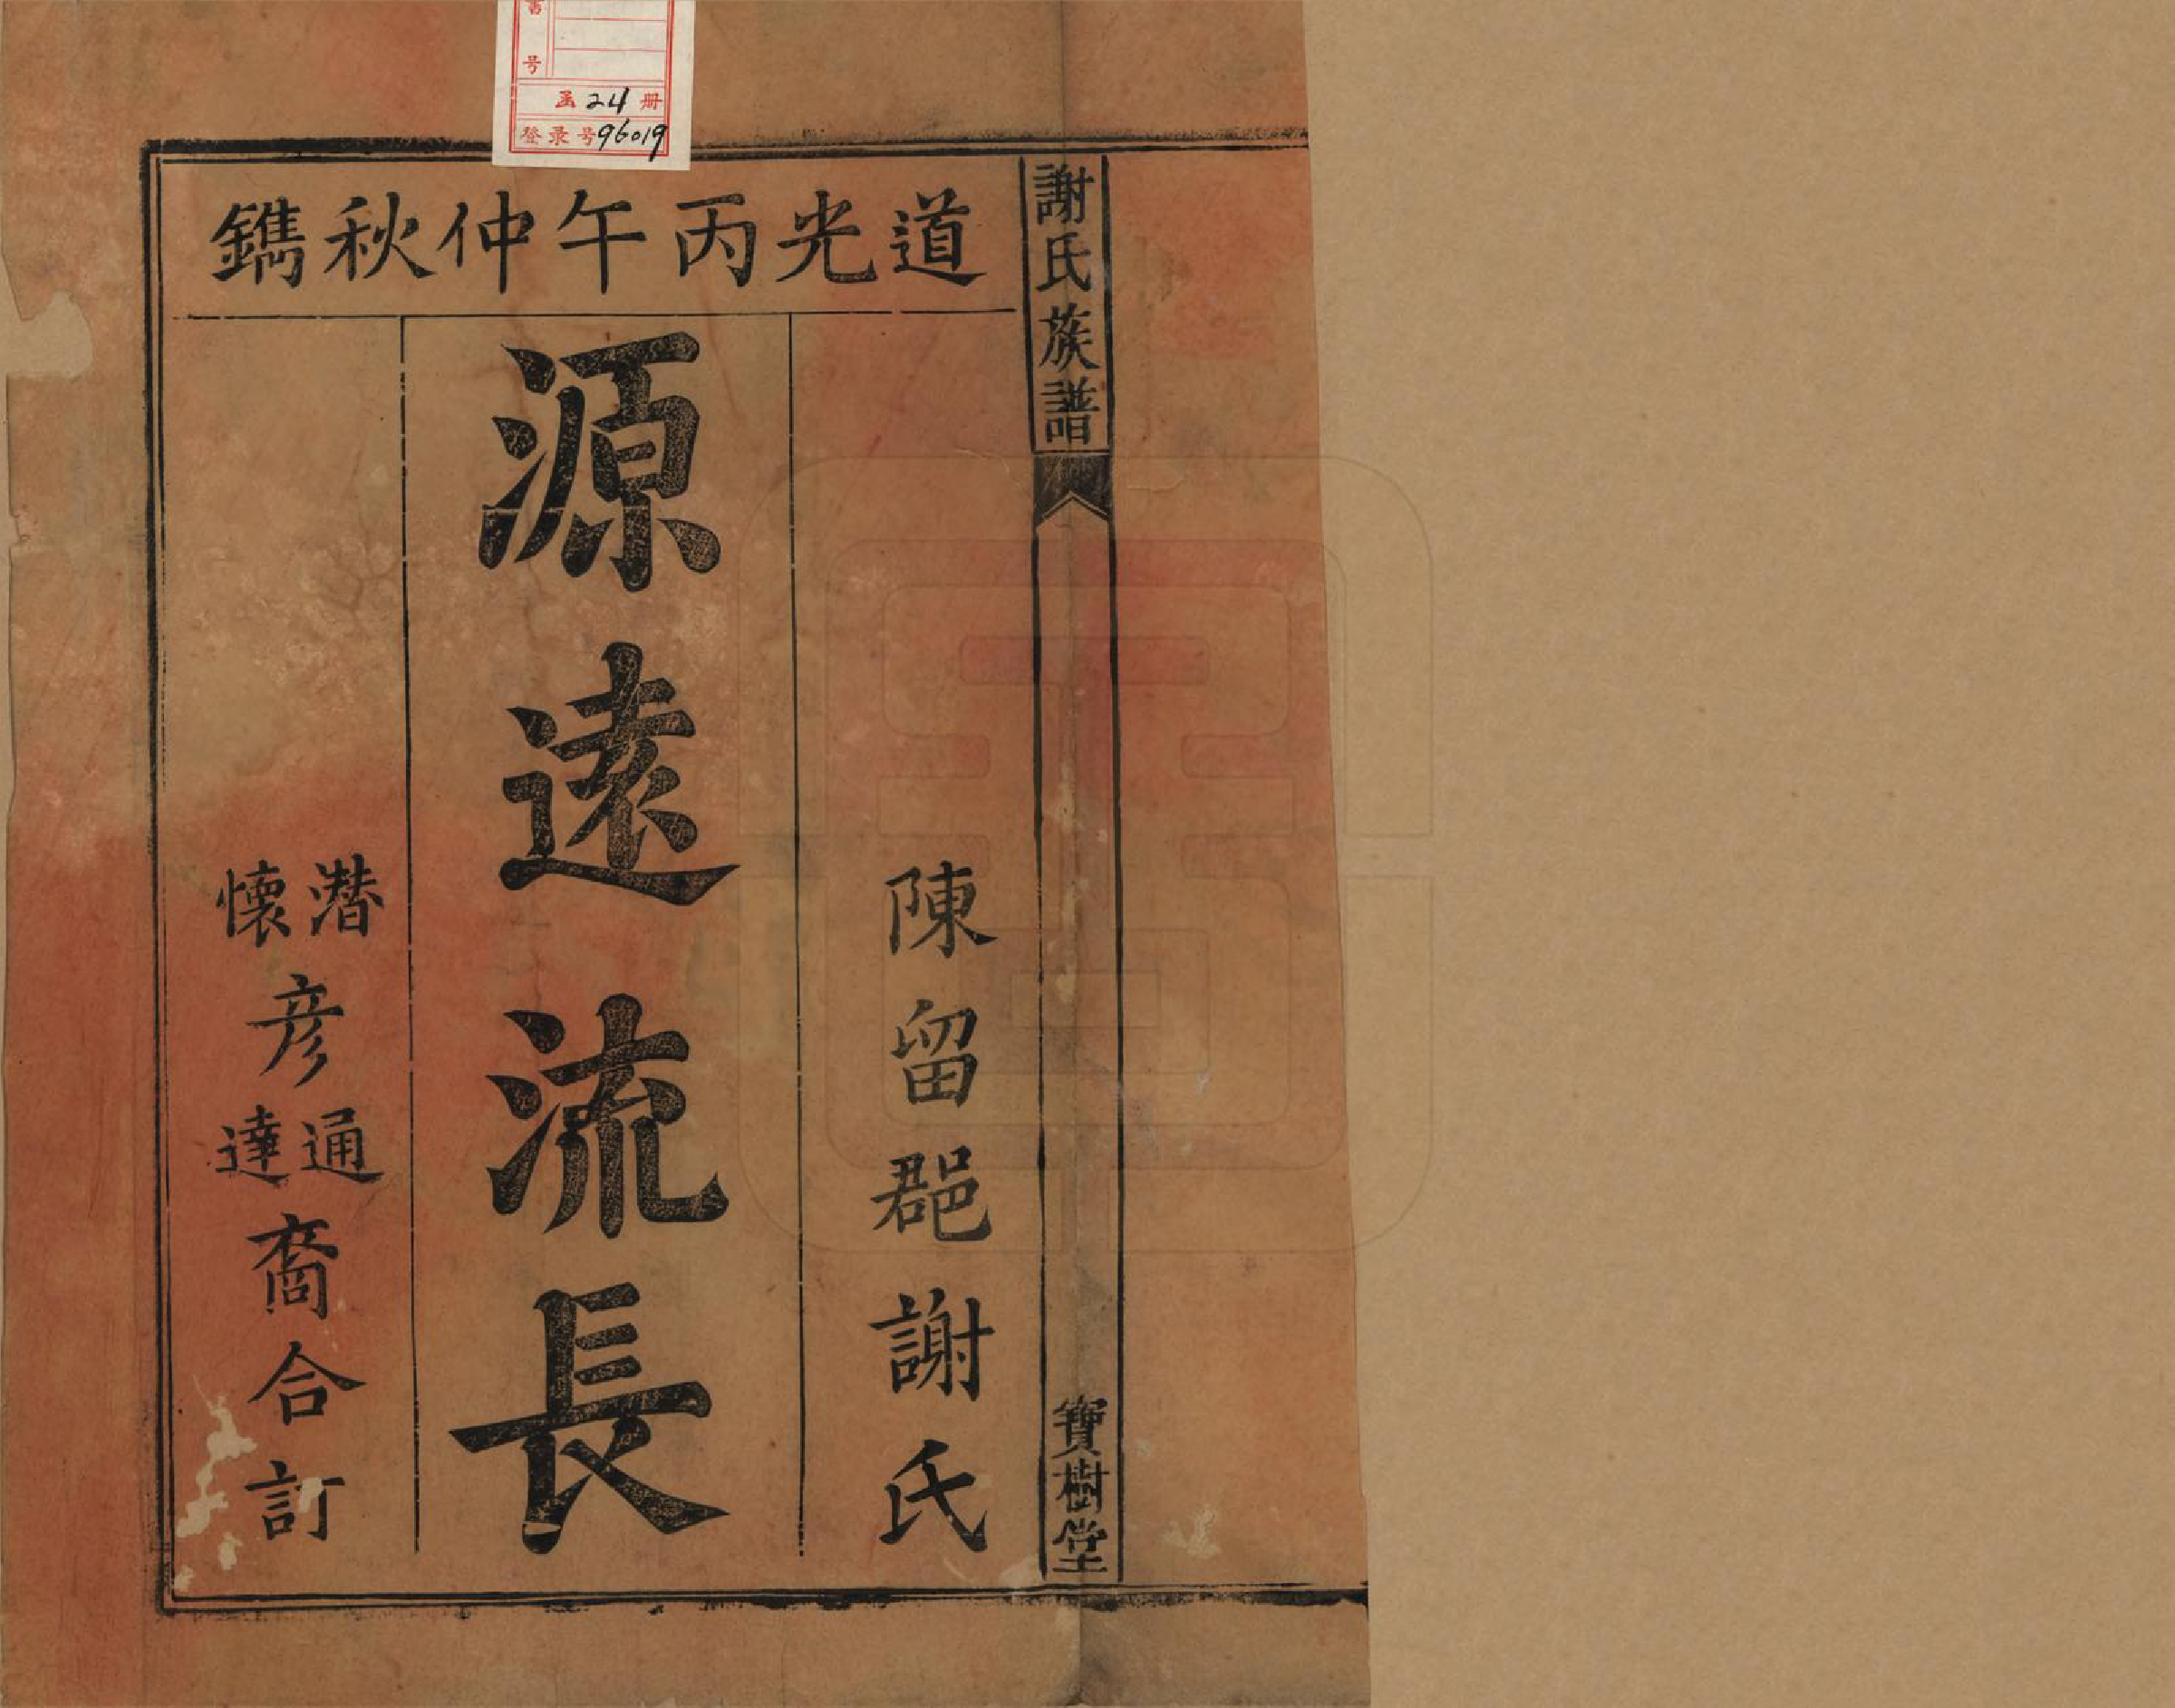 書
号
函24册
登录号96019
謝氏族譜
寶樹堂
道光丙午仲秋鐫
陳留郡謝氏
源遠流長
潛懷彦通達裔合訂